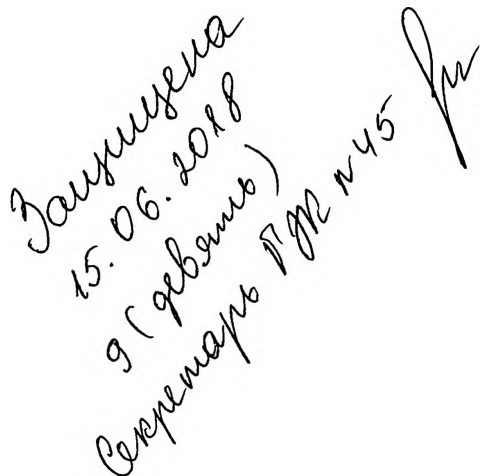 Защищена
15.06.2018
9 (девять)
Секретарь ГЭК №45